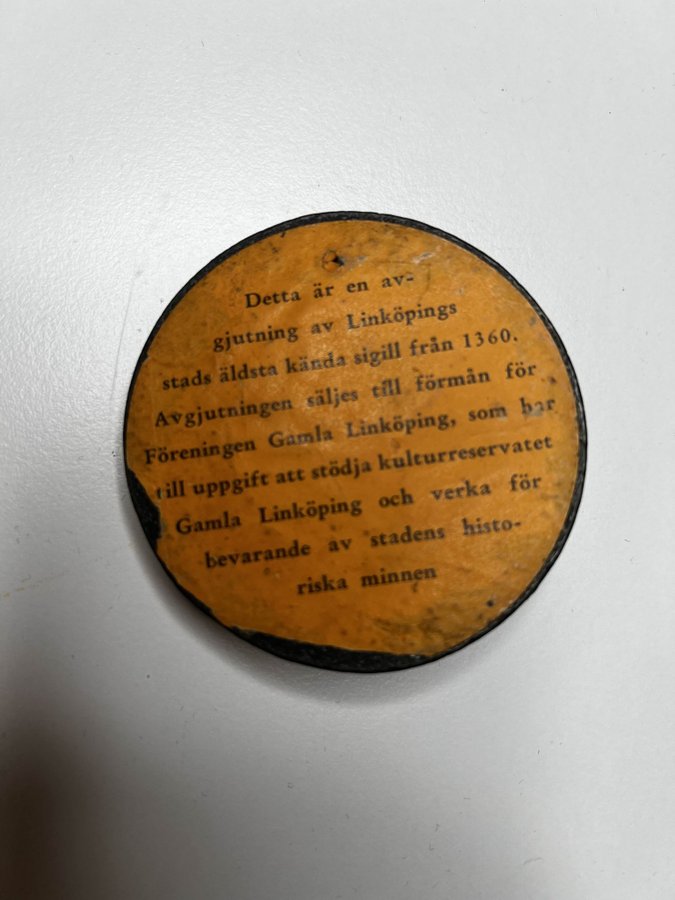 Detta är en av-
gjutning av Linköpings
stads äldsta kända sigill från 1360.
Avgjutningen säljes till förmån för
Föreningen Gamla Linköping, som har
till uppgift att stödja kulturreservatet
Gamla Linköping och verka för
bevarande av stadens histo-
riska minnen